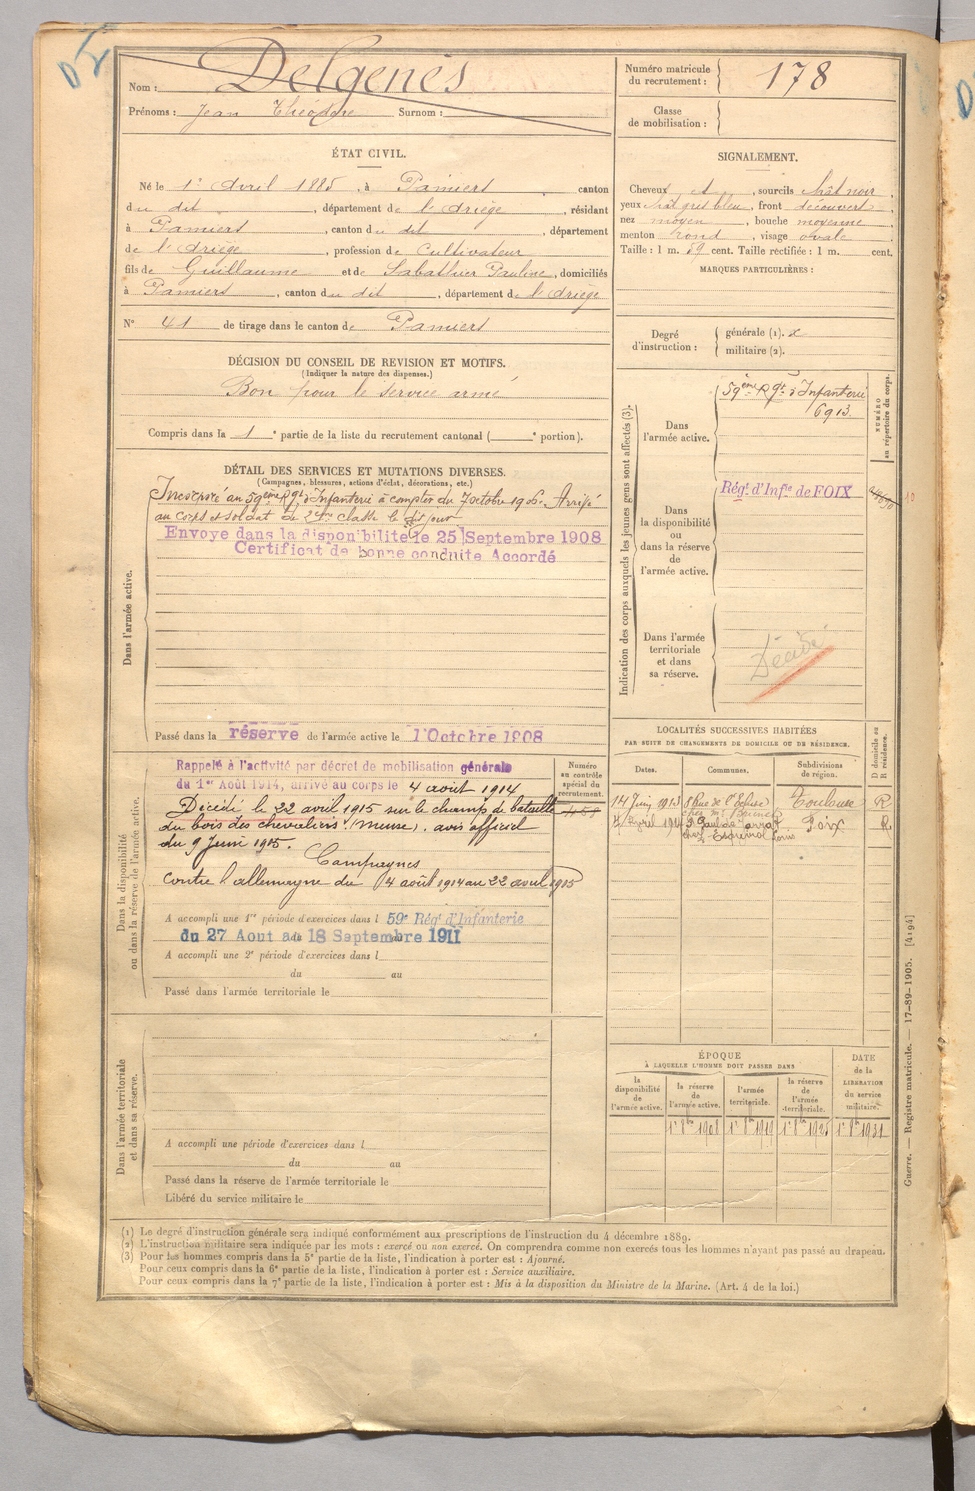 Nom : Delgenès
Prénoms : Jean Théodore Surnom :
Numéro matricule du recrutement : 178
Classe de mobilisation :
ÉTAT CIVIL.
Né le 1er Avril 1885, à Pamiers canton
du dit, département de l'Ariège, résidant
à Pamiers, canton du dit, département
de l'Ariège, profession de Cultivateur
fils de Guillaume et de Sabathier Pauline, domiciliés
à Pamiers, canton du dit, département de l'Ariège
N° 41 de tirage dans le canton de Pamiers
SIGNALEMENT.
Cheveux et, sourcils chât noir,
yeux chât gris bleu, front découvert,
nez moyen, bouche moyenne
menton rond, visage ovale
Taille : 1 m. 59 cent. Taille rectifiée : 1 m. cent.
MARQUES PARTICULIÈRES :
Degré d'instruction : générale (1). 2
militaire (2).
DÉCISION DU CONSEIL DE REVISION ET MOTIFS.
(Indiquer la nature des dispenses.)
Bon pour le service armé
Compris dans la 1e partie de la liste du recrutement cantonal ( e portion).
DÉTAIL DES SERVICES ET MUTATIONS DIVERSES.
(Campagnes, blessures, actions d'éclat, décorations, etc.)
Dans l'armée active.
Incorporé au 59ème Rgt d'Infanterie à compter du 7 octobre 1906. Arrivé
au corps et soldat de 2ème classe le dit jour
Envoyé dans la disponibilité le 25 Septembre 1908
Certificat de bonne conduite Accordé
Passé dans la réserve de l'armée active le 1 Octobre 1908
Indication des corps auxquels les jeunes gens sont affectés (3).
NUMÉRO au répertoire du corps.
Dans l'armée active.
59ème Rgt d'Infanterie
6913
Dans la disponibilité ou dans la réserve de l'armée active.
Régt d'Infie de FOIX
Dans l'armée territoriale et dans sa réserve.
Décédé
Dans la disponibilité ou dans la réserve de l'armée active.
Rappelé à l'activité par décret de mobilisation générale
du 1er Août 1914, arrivé au corps le 4 août 1914
Décédé le 22 avril 1915 sur le champ de bataille
du bois des chevaliers (Meuse). avis officiel
du 9 Juin 1915.
Campagnes
contre l'allemagne du 4 août 1914 au 22 avril 1915
A accompli une 1re période d'exercices dans l 59e Régt d'Infanterie
du 27 Aout au 18 Septembre 1911
A accompli une 2e période d'exercices dans l
du au
Passé dans l'armée territoriale le
Numéro au contrôle spécial du recrutement.
LOCALITÉS SUCCESSIVES HABITÉES
PAR SUITE DE CHANGEMENTS DE DOMICILE OU DE RÉSIDENCE.
Dates. Communes. Subdivisions de région. D domicile ou R résidence.
14 Juin 1913 8 Rue de l' Toulouse R
Avril 1914 St Paul de Jarrat Foix R
chez
Dans l'armée territoriale et dans sa réserve.
A accompli une période d'exercices dans l
du au
Passé dans la réserve de l'armée territoriale le
Libéré du service militaire le
ÉPOQUE
À LAQUELLE L'HOMME DOIT PASSER DANS
la disponibilité de l'armée active.
la réserve de l'armée active.
l'armée territoriale.
la réserve de l'armée territoriale.
DATE de la LIBÉRATION du service militaire.
1er 8bre 1908 1er 8bre 1919 1er 8bre 1925 1er 8bre 1931
Guerre. — Registre matricule. — 17-89-1905. [4194]
(1) Le degré d'instruction générale sera indiqué conformément aux prescriptions de l'instruction du 4 décembre 1889.
(2) L'instruction militaire sera indiquée par les mots : exercé ou non exercé. On comprendra comme non exercés tous les hommes n'ayant pas passé au drapeau.
(3) Pour les hommes compris dans la 5e partie de la liste, l'indication à porter est : Ajourné.
Pour ceux compris dans la 6e partie de la liste, l'indication à porter est : Service auxiliaire.
Pour ceux compris dans la 7e partie de la liste, l'indication à porter est : Mis à la disposition du Ministre de la Marine. (Art. 4 de la loi.)